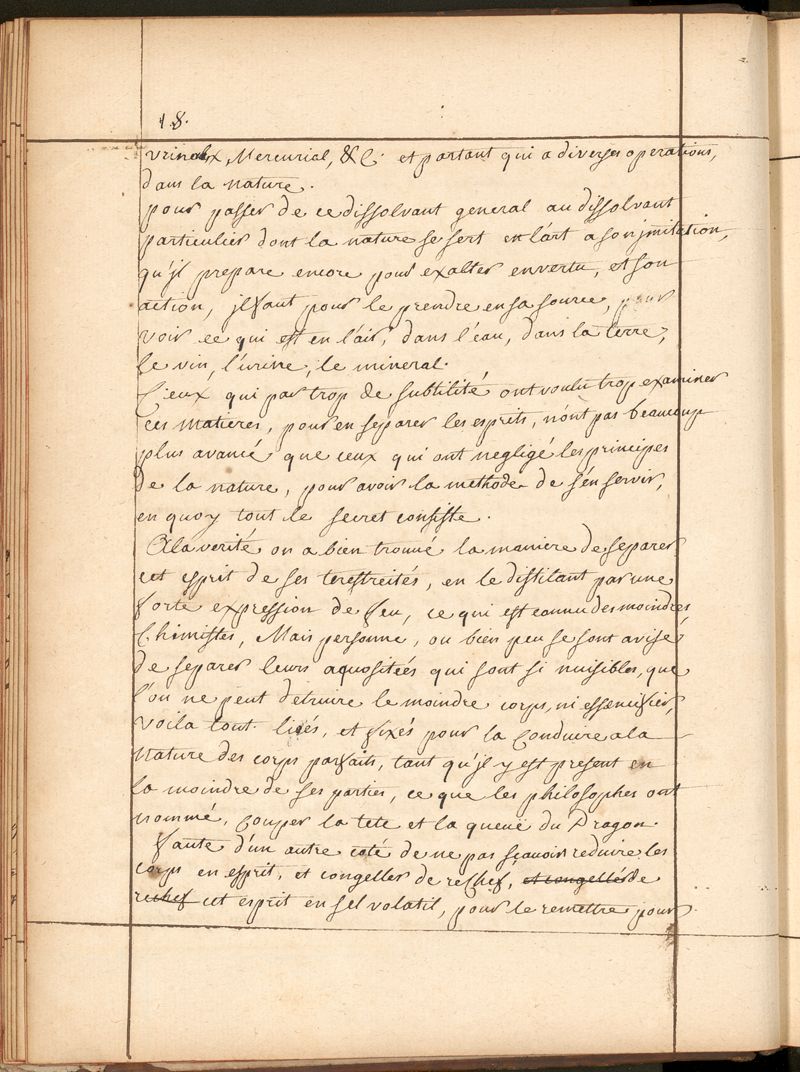 18.
vrinalx, Mercurial, &c. et partant qui a diverses operations,
dans la nature.
pour passer de ce dissolvant general au dissolvant
particulier dont la nature se sert en l'art a son jmitation,
qu'jl prepare encore pour exalter en vertu, et son
action, jl faut pour le prendre en sa source, pour
voir ce qui est en l'air, dans l'eau, dans la terre,
le vin, l'urine, le mineral.
Ceux qui par trop de subtilité ont voulu trop examiner
ces matieres, pour en separer les esprits, n'ont pas beaucoup
plus avancé que ceux qui ont negligé les principes
de la nature, pour avoir la methode de s'en servir,
en quoy tout le secret consiste.
A la verité on a bien trouué la maniere de separer
cet esprit de ses terestreités, en le distilant par une
forte expression de feu, ce qui est connu des moindres
Chimistes, Mais personne, ou bien peu se sont avisé
de separer leurs aquositées qui sont si nuisibles, que
l'on ne peut detruire le moindre corps, ni essencifier,
voila tout. liés, et fixés pour la Conduire a la
nature des corps parfaits, tant qu'jl y est present en
la moindre de ses parties, ce que les philosophes ont
nommé, Couper la tete et la queüe du Dragon.
faute d'un autre coté de ne pas sçavoir reduire les
corps en esprit, et congeller de rechef, et congellér de
rechef cet esprit en sel volatil, pour le remettre pour